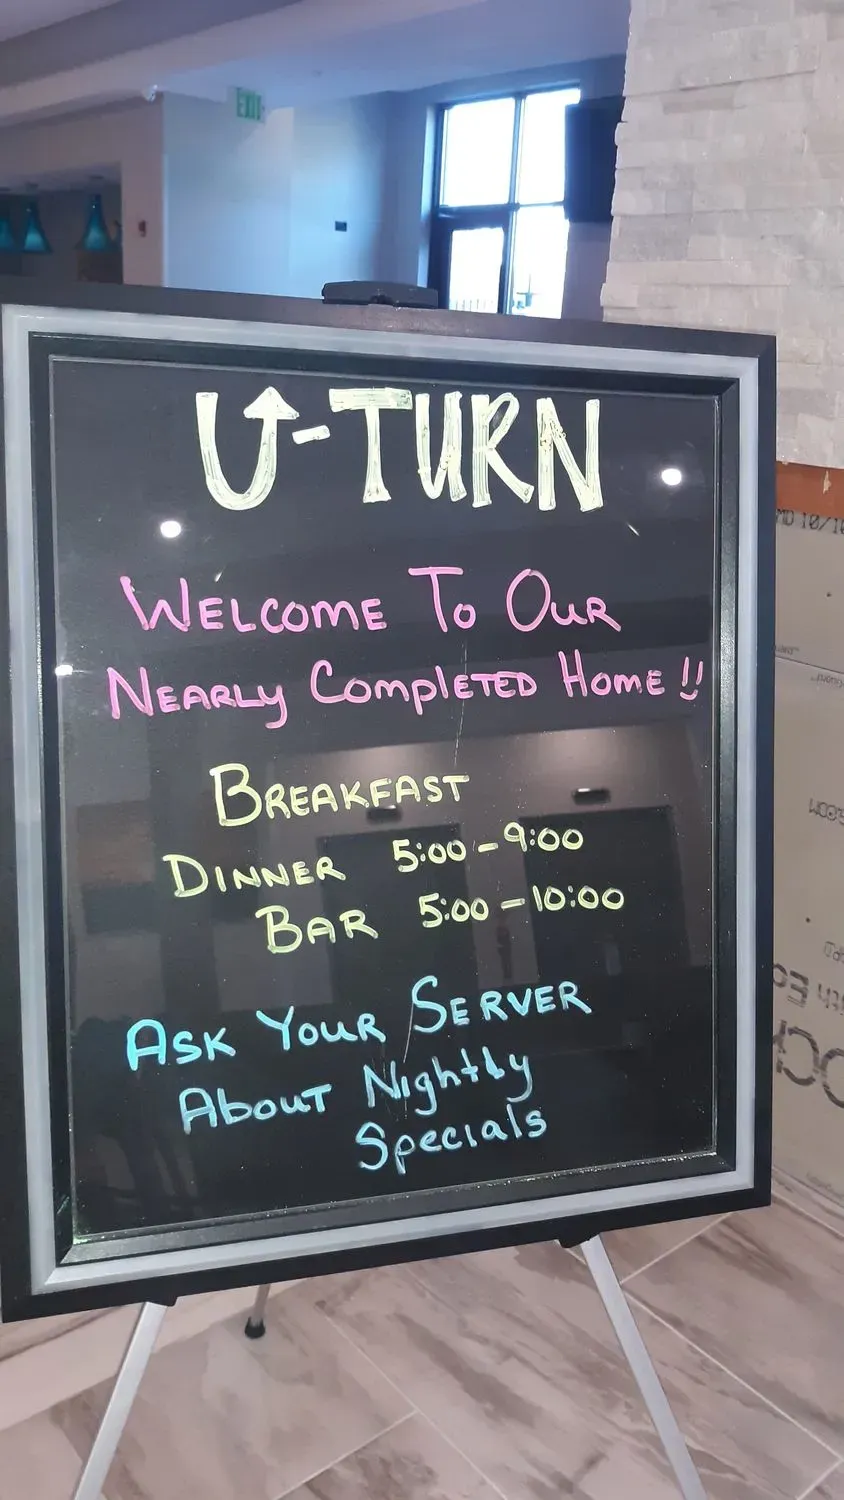 EXIT
U-TURN
WELCOME TO OUR
NEARLY COMPLETED HOME !!
BREAKFAST
DINNER 5:00 - 9:00
BAR 5:00 - 10:00
ASK YOUR SERVER
ABOUT Nightly
Specials